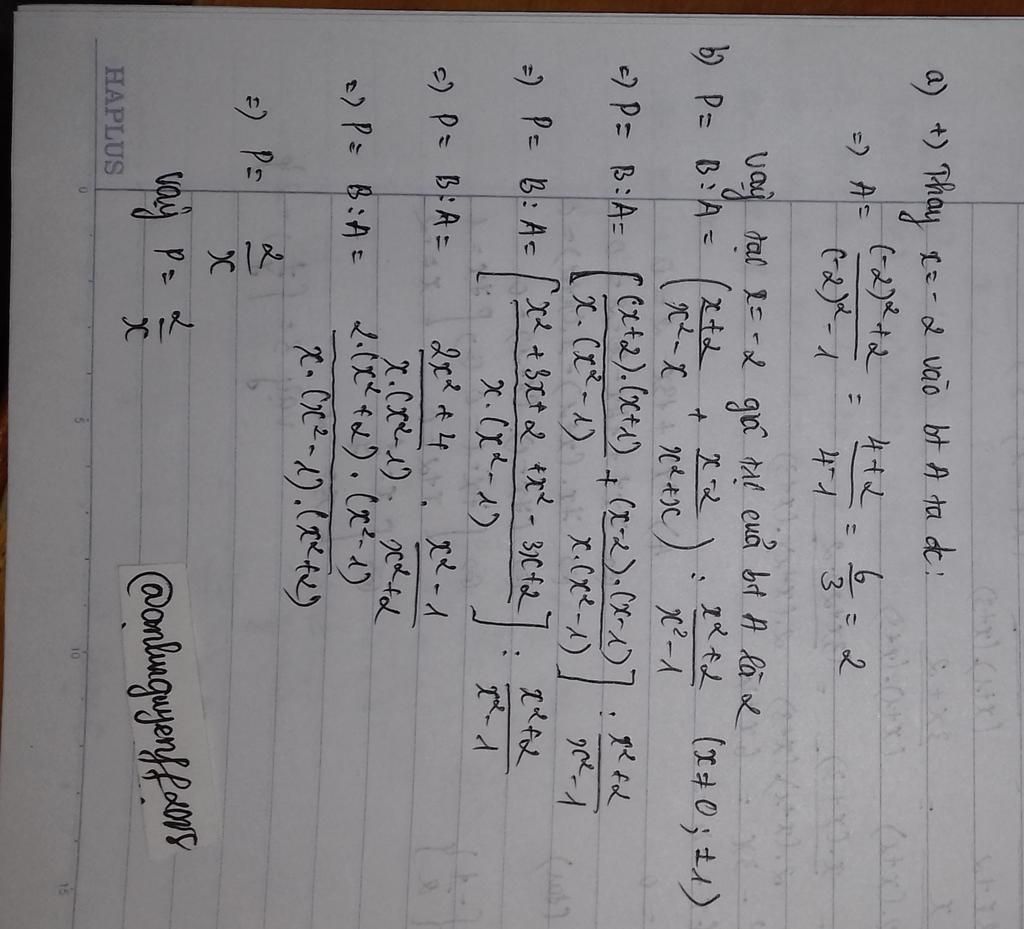 a) +) Thay x = -2 vào bt A ta đc:
=) A = \frac{(-2)^2+2}{(-2)^2-1} = \frac{4+2}{4-1} = \frac{6}{3} = 2
Vậy tại x = -2 giá trị của bt A là 2
b) P = B : A = (\frac{x+2}{x^2-x} + \frac{x-2}{x^2+x}) : \frac{x^2+2}{x^2-1} (x ≠ 0; ±1)
=) P = B : A = [\frac{(x+2).(x+1)}{x.(x^2-1)} + \frac{(x-2).(x-1)}{x.(x^2-1)}] : \frac{x^2+2}{x^2-1}
=) P = B : A = [\frac{x^2+3x+2+x^2-3x+2}{x.(x^2-1)}] : \frac{x^2+2}{x^2-1}
=) P = B : A = \frac{2x^2+4}{x.(x^2-1)} . \frac{x^2-1}{x^2+2}
=) P = B : A = \frac{2.(x^2+2).(x^2-1)}{x.(x^2-1).(x^2+2)}
=) P = \frac{2}{x}
Vậy P = \frac{2}{x}
HAPLUS
0
5
10
15